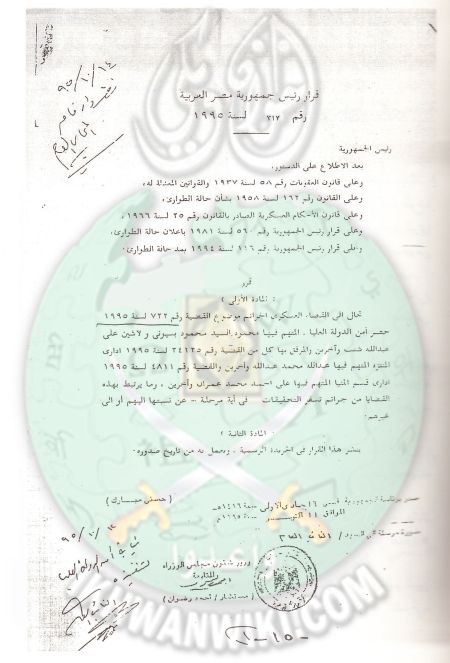 ٩٥/١٠/١٤
قرار رئيس جمهورية مصر العربية
رقم ٣١٧ لسنة ١٩٩٥
رئيس الجمهورية
بعد الاطلاع على الدستور،
وعلى قانون العقوبات رقم ٥٨ لسنة ١٩٣٧ والقوانين المعدلة له،
وعلى القانون رقم ١٦٢ لسنة ١٩٥٨ بشأن حالة الطوارئ،
وعلى قانون الأحكام العسكرية الصادر بالقانون رقم ٢٥ لسنة ١٩٦٦،
وعلى قرار رئيس الجمهورية رقم ٥٦٠ لسنة ١٩٨١ باعلان حالة الطوارئ،
وعلى قرار رئيس الجمهورية رقم ١١٦ لسنة ١٩٩٤ بمد حالة الطوارئ،
قرر
( المادة الأولى )
تحال الى القضاء العسكرى الجرائم موضوع القضية رقم ٧٢٢ لسنة ١٩٩٥
حصر أمن الدولة العليا، المتهم فيها محمود السيد محمود بسيونى ولاشين على
عبدالله شنب وآخرين والمرفق بها كل من القضية رقم ٢٤١٢٥ لسنة ١٩٩٥ ادارى
المنتزه المتهم فيها عبدالله محمد عبدالله وآخرين والقضية رقم ٤٨١١ لسنة ١٩٩٥
ادارى قسم المنيا المتهم فيها على احمد محمد عمران وآخرين، وما يرتبط بهذه
القضايا من جرائم تسفر التحقيقات - فى أية مرحلة - عن نسبتها اليهم أو الى
غيرهم.
( المادة الثانية )
ينشر هذا القرار فى الجريدة الرسمية، ويعمل به من تاريخ صدوره.
صدر برئاسة الجمهورية فى ١٦ جمادى الأولى سنة ١٤١٦هـ
الموافق ١١ أكتوبر سنة ١٩٩٥م
( حسنى مبارك )
وزير شئون مجلس الوزراء
والمتابعة
مستشار / أحمد رضوان
وأعدوا
IKHWANWIKI.COM
-١٥-